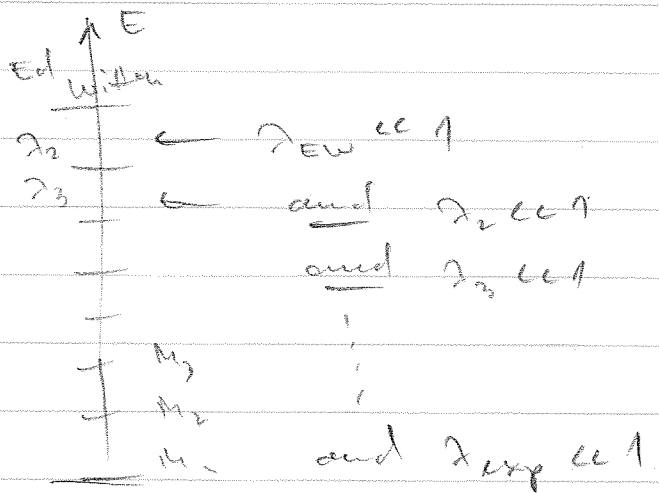 E
Ed Witten
λ₂ ← λ_EW << 1
λ₃ ← and λ₂ << 1
and λ₃ << 1
M₃
M₂
and λ_exp << 1